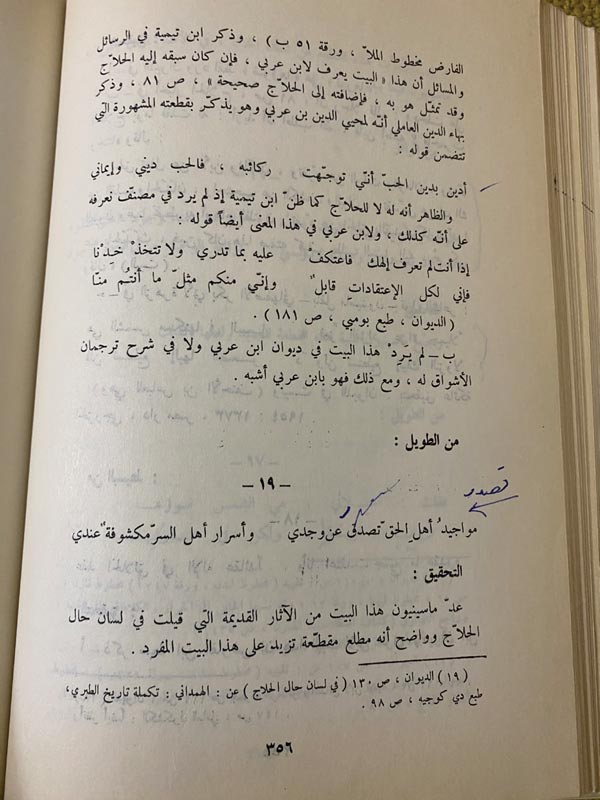 الفارض مخطوط الملاّ ، ورقة ٥١ ب ) ، وذكر ابن تيمية في الرسائل
والمسائل أن هذا « البيت يعرف لابن عربي ، فإن كان سبقه إليه الحلاّج
وقد تمثّل هو به ، فإضافته إلى الحلاّج صحيحة » ، ص ٨١ ، وذكر
بهاء الدين العاملي أنّه لمحيي الدين بن عربي وهو يذكّر بقطعته المشهورة التي
تتضمن قوله :
أدين بدين الحبّ أنّي توجّهت ركائبه ، فالحب ديني وإيماني
والظاهر أنه له لا للحلاّج كما ظنّ ابن تيمية إذ لم يرد في مصنّف نعرفه
على أنّه كذلك ، ولابن عربي في هذا المعنى أيضاً قوله :
إذا أنت لم تعرف إلهك فاعتكفْ عليه بما تدري ولا تتخذْ خدْنا
فإني لكل الإعتقادات قابلٌ وإنّي منكم مثل ما أنتُم منّا
( الديوان ، طبع بومبي ، ص ١٨١ ) .
ب – لم يَرِدْ هذا البيت في ديوان ابن عربي ولا في شرح ترجمان
الأشواق له ، ومع ذلك فهو بابن عربي أشبه .
من الطويل :
– ١٩ –
تصدر
مواجيدُ أهل الحقّ تصدق عن وجدي وأسرار أهل السرّ مكشوفةٌ عندي
التحقيق :
عدّ ماسينيون هذا البيت من الآثار القديمة التي قيلت في لسان حال
الحلاّج وواضح أنه مطلع مقطّعة تزيد على هذا البيت المفرد .
( ١٩ ) الديوان ، ص ١٣٠ ( في لسان حال الحلاج ) عن : الهمداني : تكملة تاريخ الطبري،
طبع دي كوجيه ، ص ٩٨ .
٣٥٦